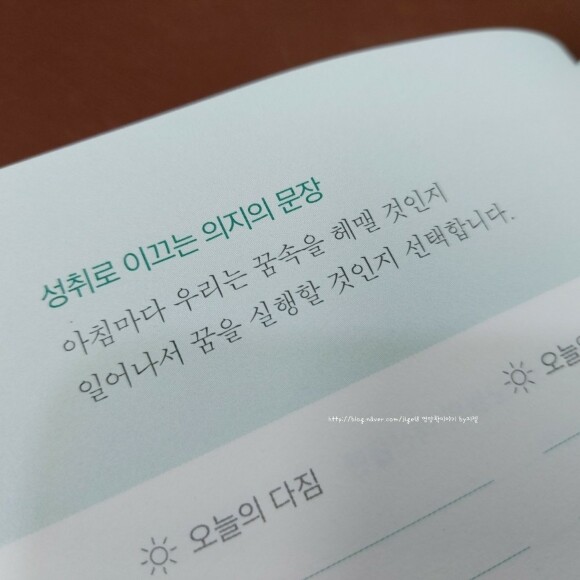 성취로 이끄는 의지의 문장
아침마다 우리는 꿈속을 헤맬 것인지
일어나서 꿈을 실행할 것인지 선택합니다.
오늘의 다짐